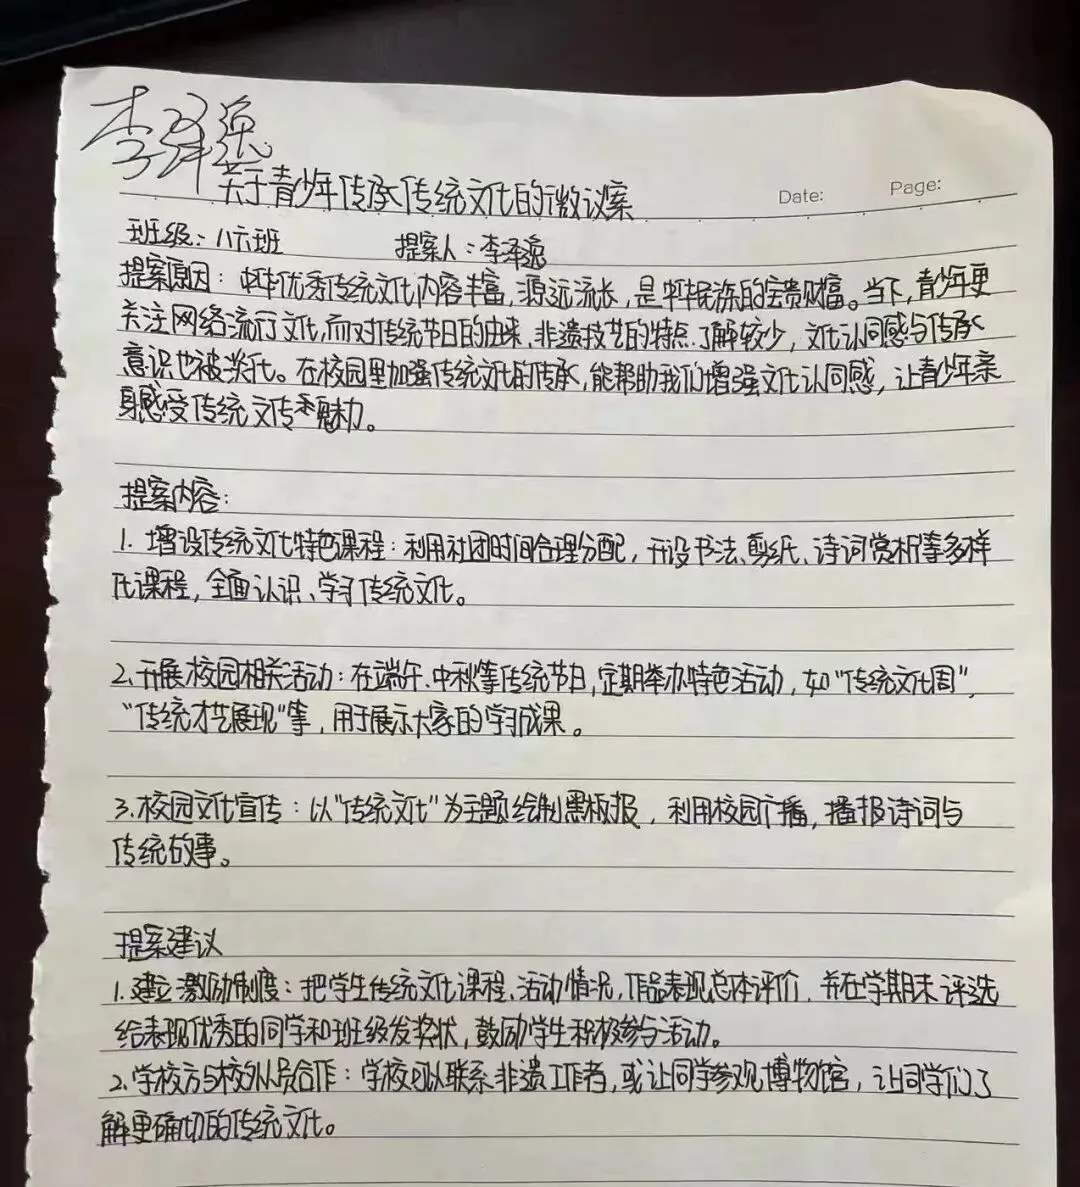 李泽逸
关于青少年传承传统文化的微议案
Date: Page:
班级：八六班 提案人：李泽逸
提案原因：中华优秀传统文化内容丰富，源远流长，是中华民族的宝贵财富。当下，青少年更
关注网络流行文化，而对传统节日的由来、非遗技艺的特点了解较少，文化认同感与传承
意识也被淡化。在校园里加强传统文化的传承，能帮助我们增强文化认同感，让青少年亲
身感受传统文传承魅力。
提案内容：
1. 增设传统文化特色课程：利用社团时间合理分配，开设书法、剪纸、诗词赏析等多样
化课程，全面认识、学习传统文化。
2.开展校园相关活动：在端午、中秋等传统节日，定期举办特色活动，如“传统文化周”，
“传统才艺展现”等，用于展示大家的学习成果。
3.校园文化宣传：以“传统文化”为主题绘制黑板报，利用校园广播，播报诗词与
传统故事。
提案建议
1.建立激励制度：把学生传统文化课程、活动情况，作品表现总体评价，并在学期末评选
给表现优秀的同学和班级发奖状，鼓励学生积极参与活动。
2.学校方与校外人员合作：学校可以联系非遗工作者，或让同学参观博物馆，让同学们了
解更确切的传统文化。